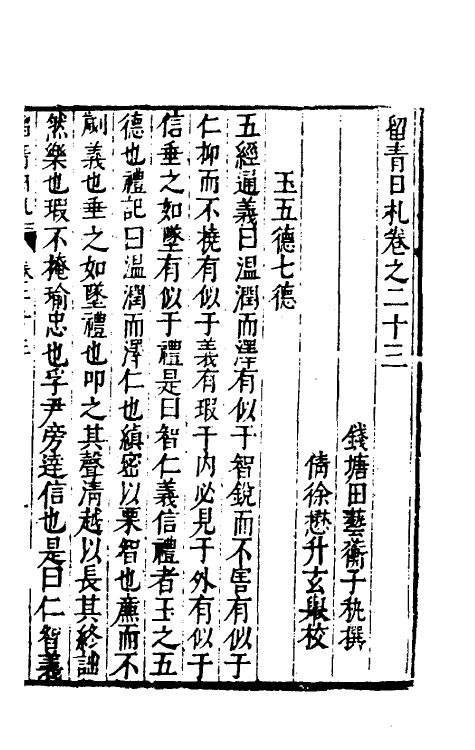 留青日札卷之二十三
錢塘田藝蘅子秇撰
倩徐懋升玄舉校
玉五德七德
五經通義曰温潤而澤有似于智銳而不害有似于
仁抑而不撓有似于義有瑕于内必見于外有似于
信垂之如墜有似于禮是曰智仁義信禮者玉之五
德也禮記曰温潤而澤仁也縝密以栗智也廉而不
劌義也垂之如墜禮也叩之其聲清越以長其終詘
然樂也瑕不掩瑜忠也孚尹旁達信也是曰仁智義
留青日札 卷二十三